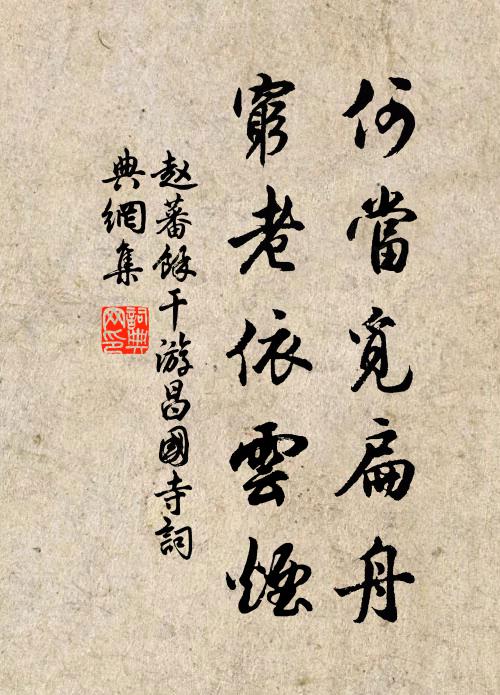 何當覓扁舟
窮老依雲煙
赵蕃餘干游昌國寺詞
典網集
詞典
网印